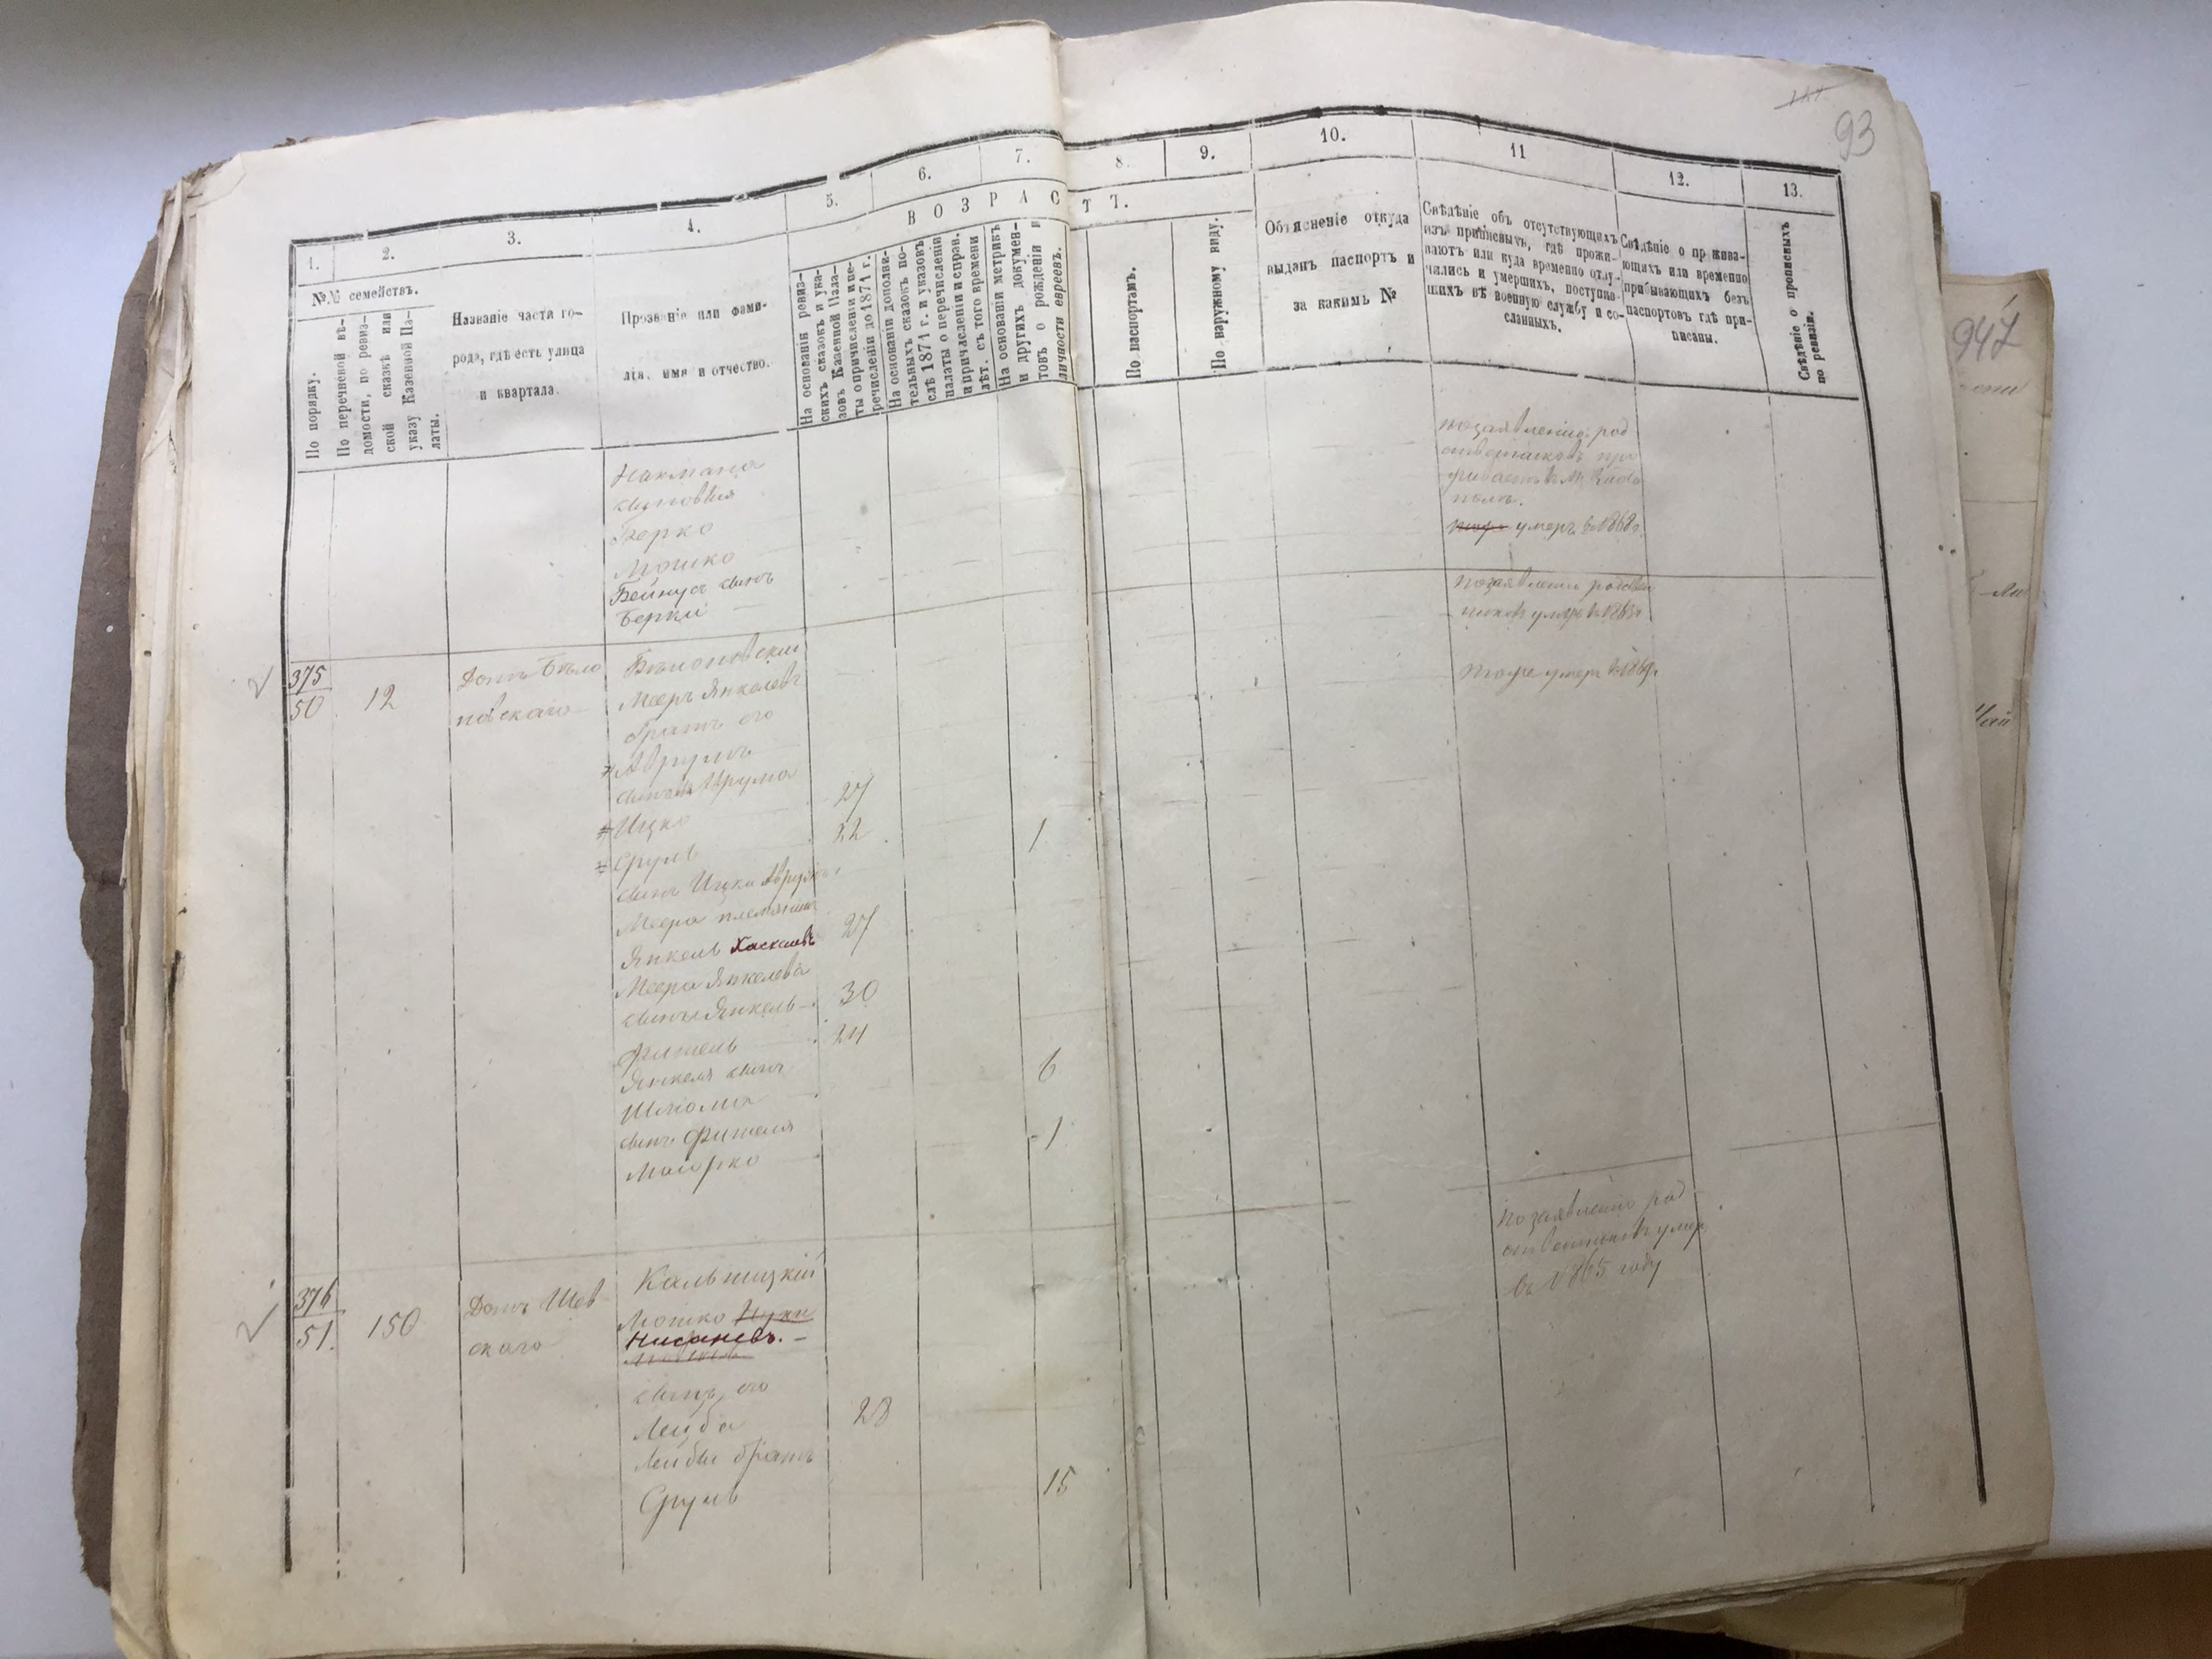 93
1.
2.
3.
4.
5.
6.
7.
8.
9.
10.
11
12.
13.
ВОЗРАСТЪ.
№№ семействъ.
По порядку.
По перечневой вѣ-
домости, по ревиз-
ской сказкѣ или
указу Казенной Па-
латы.
Названіе части го-
рода, гдѣ есть улица
и квартала.
Прозваніе или фами-
лія, имя и отчество.
На основаніи ревиз-
скихъ сказокъ и ука-
зовъ Казенной Пала-
ты о причисленіи и пе-
речисленіи до 1871 г.
На основаніи дополни-
тельныхъ сказокъ по-
слѣ 1871 г. и указовъ
палаты о перечисленіи
и причисленіи и справ.
лѣт. съ того времени
На основаніи метрикъ
и другихъ докумен-
товъ о рожденіи и
личности евреевъ.
По паспортамъ.
По наружному виду.
Объясненіе откуда
выданъ паспортъ и
за какимъ №
Свѣдѣніе объ отсутствующихъ
изъ приписныхъ, гдѣ прожи-
ваютъ или куда временно отлу-
чились и умершихъ, поступив-
шихъ въ военную службу и со-
сланныхъ.
Свѣдѣніе о прожива-
ющихъ или временно
прибывающихъ безъ
паспортовъ гдѣ при-
писаны.
Свѣдѣніе о прописныхъ
по ревизіи.
Нахмана
сыновья
Берко
Мошко
Бейнусъ сынъ
Берки
по заявленію род
ственниковъ про
живаетъ въ М.
умеръ в 1868 г.
По заявленію родствен
никовъ умеръ в 1863 г
тоже умеръ в 1869 г
375
50
12
Домъ Бѣло
новскаго
Мееръ Янкелевъ
братъ его
Аврумъ
сыновья Аврума
Ицко 27
Сруль 22
сынъ Ицки Аврумъ 1
Меера племянникъ
Янкель Хаскелевъ 27
Меера Янкелева
сынъ Янкель 30
Фишель 24
Янкеля сынъ
Шлома 6
сынъ Фишеля
Маірко 1
376
51.
150
Домъ Шев
скаго
Кальницкій
Мошко
Нисановъ.
сынъ его
Лейба 28
Лейбы братъ
Сруль 15
По заявленію род
ственниковъ умер.
въ 1865 году
947